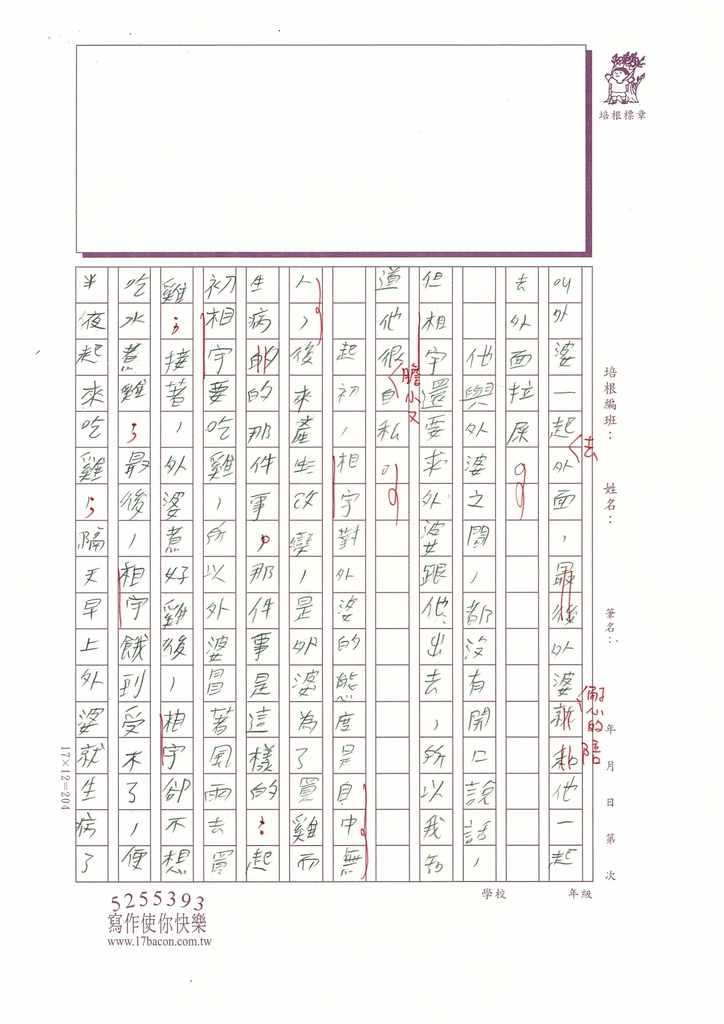 培根標章
培根編班：　姓名：　筆名：　年　月　日　第　次
學校　年級
叫外婆一起外面，最後外婆就和他一起
去
耐心的陪
去外面拉屎。
他與外婆之間，都沒有開口說話，
但相宇還要求外婆跟他出去，所以我知
道他很自私。
膽小又
起初，相宇對外婆的態度是目中無
人，後來產生改變，是外婆為了買雞而
生病的的那件事，那件事是這樣的：起
初相宇要吃雞，所以外婆冒著風雨去買
雞；接著，外婆煮好雞後，相宇卻不想
吃水煮雞；最後，相宇餓到受不了，便
半夜起來吃雞；隔天早上外婆就生病了
17×12=204
5255393
寫作使你快樂
www.17bacon.com.tw